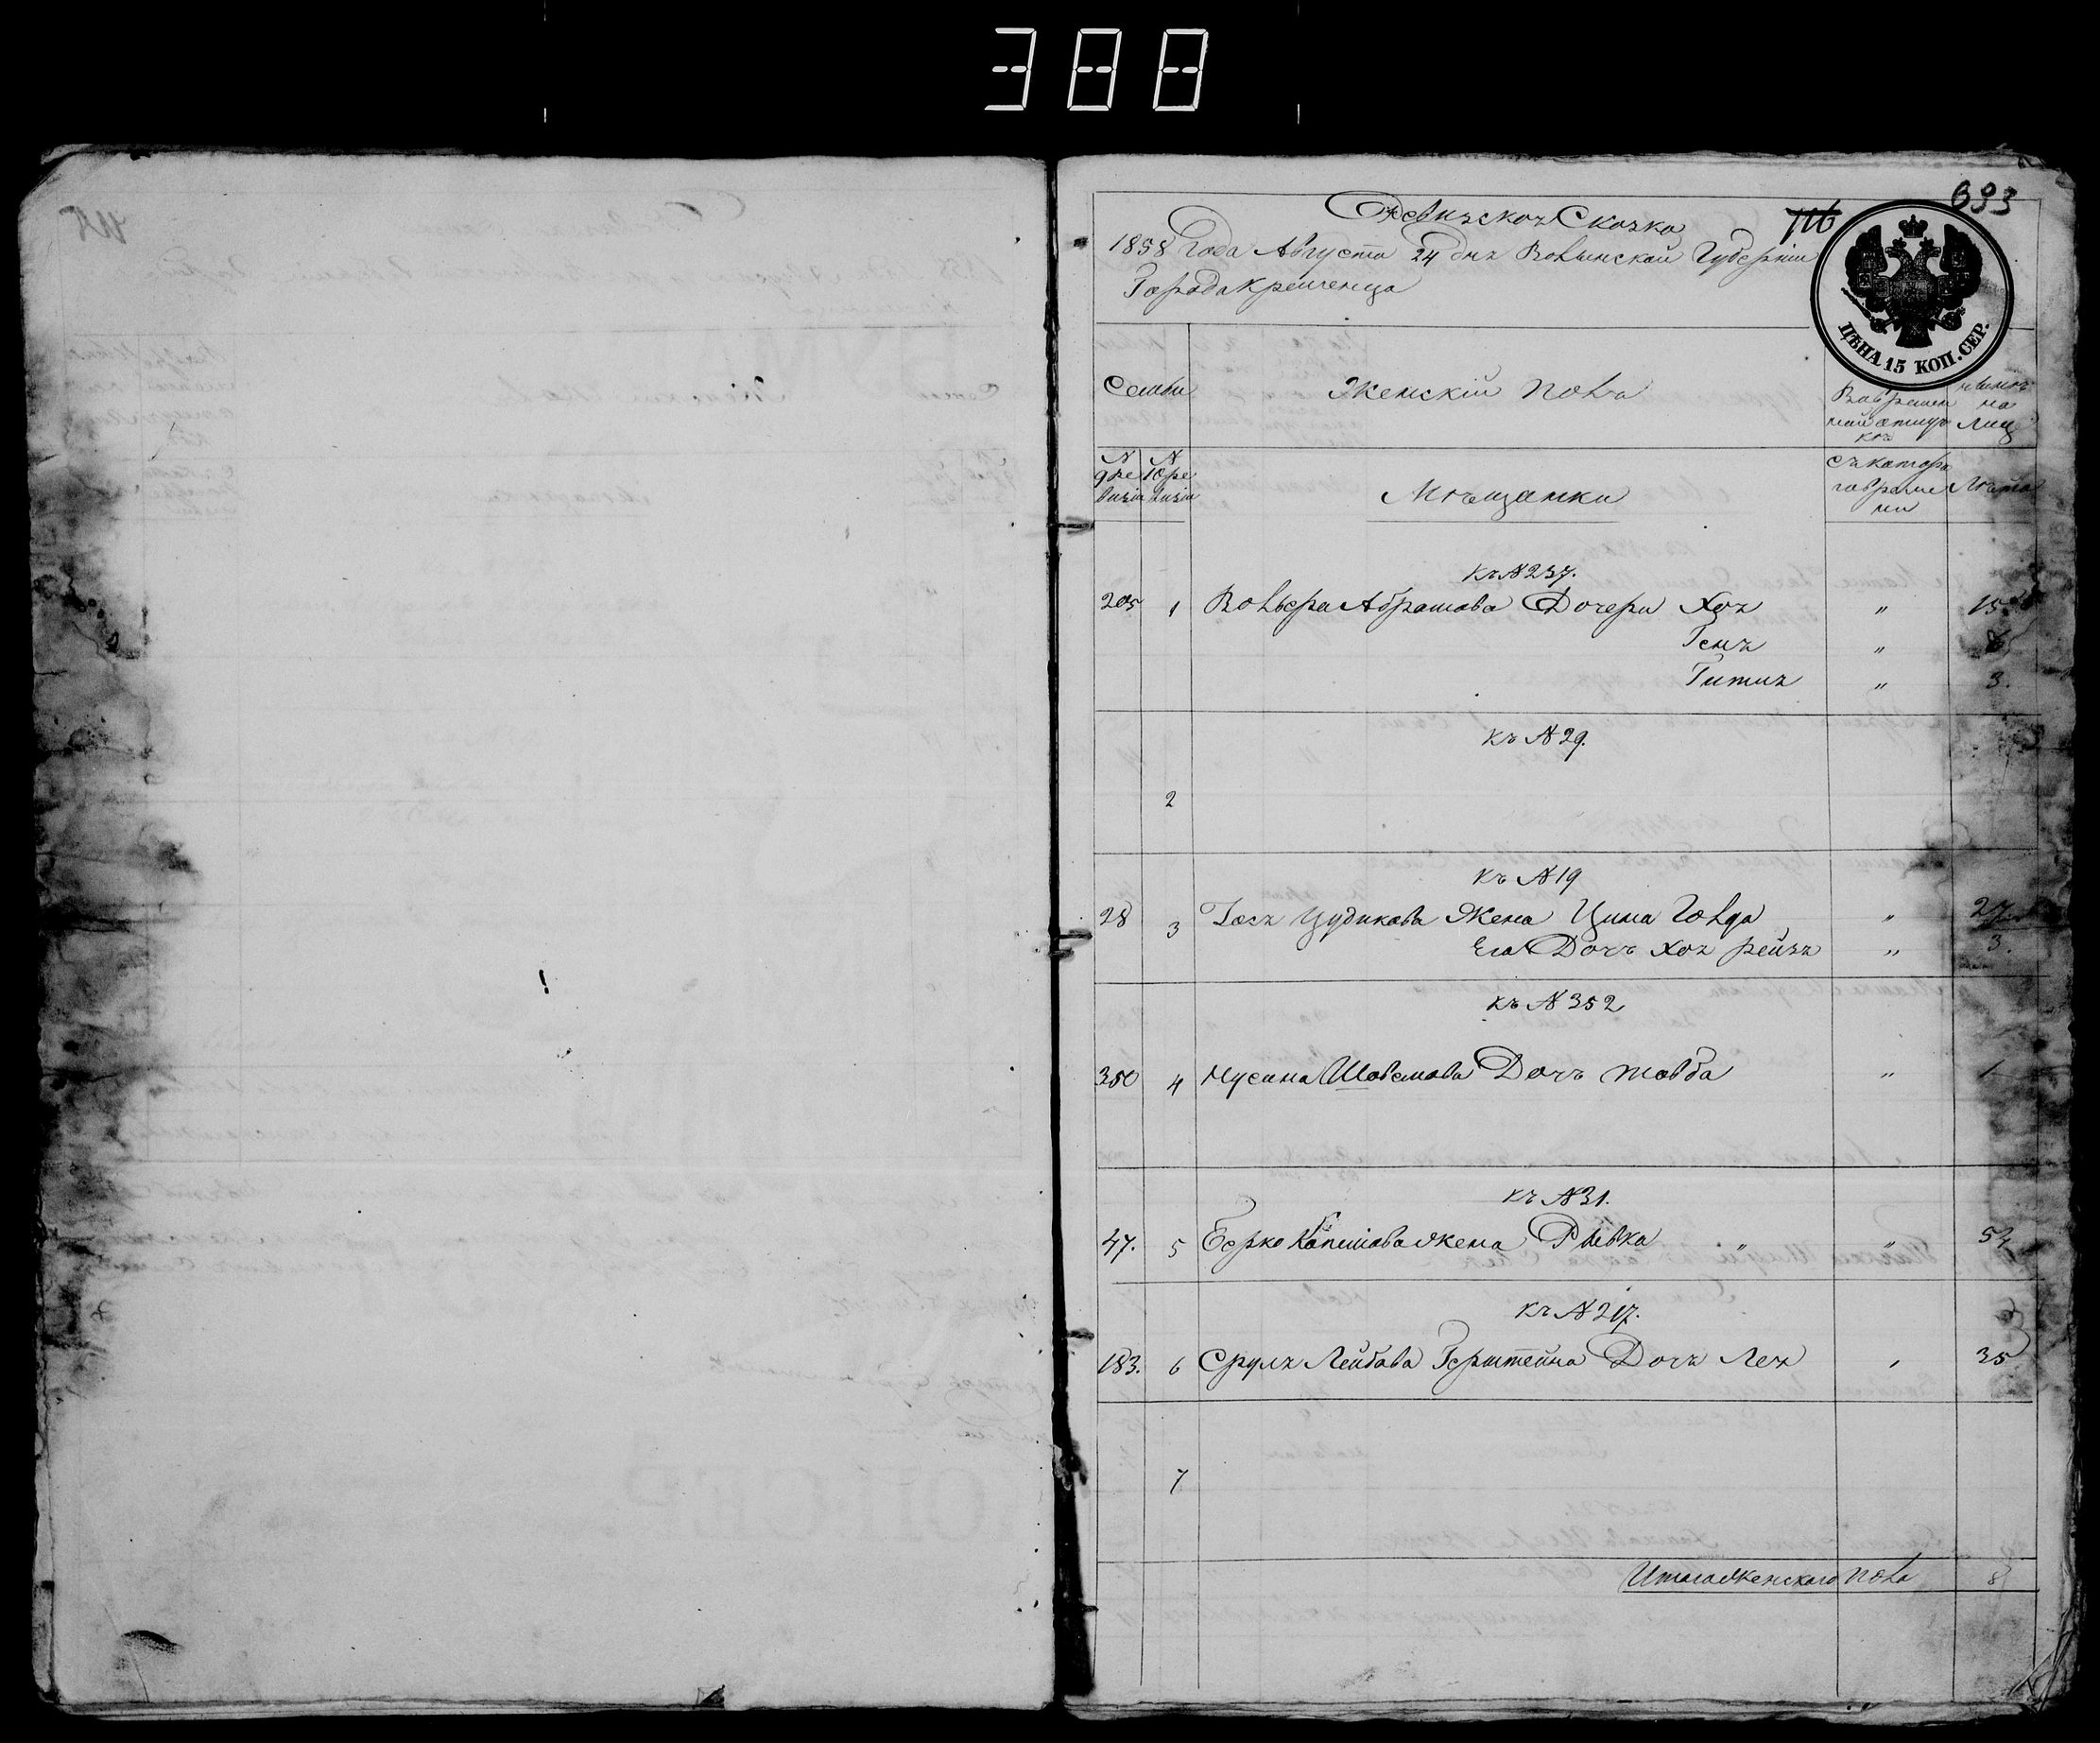 388
693
716
Ревизская Сказка
1858 Года Августа 24 дня Волынской Губерніи
Города Кременца
ЦѢНА 15 КОП. СЕР.
Семьи
Женскій пола
Вовремен
ной отлуч
кѣ
на
Лиц
№
9 ре
визіи
№
10 ре
визіи
Мѣщанки
съ котора
говреме
ни
Лѣта
къ № 237.
205 1 Вольфа Абрамова Дочери Хая " 15
Геня "
Гитля " 3.
къ № 29.
2
къ № 19
28 3 Іось Цудикова Жена Цима Голда " 27
Его Дочь Хая рейзя " 3.
къ № 352
350 4 Нусина Шовемова Дочь товба " 1
къ № 31.
47. 5 Берко Капишова жена Рывка " " 54
къ № 217.
183. 6 Сруля Лейбова Герштейна Дочь Лея " 35
7
Итого женскаго пола 8